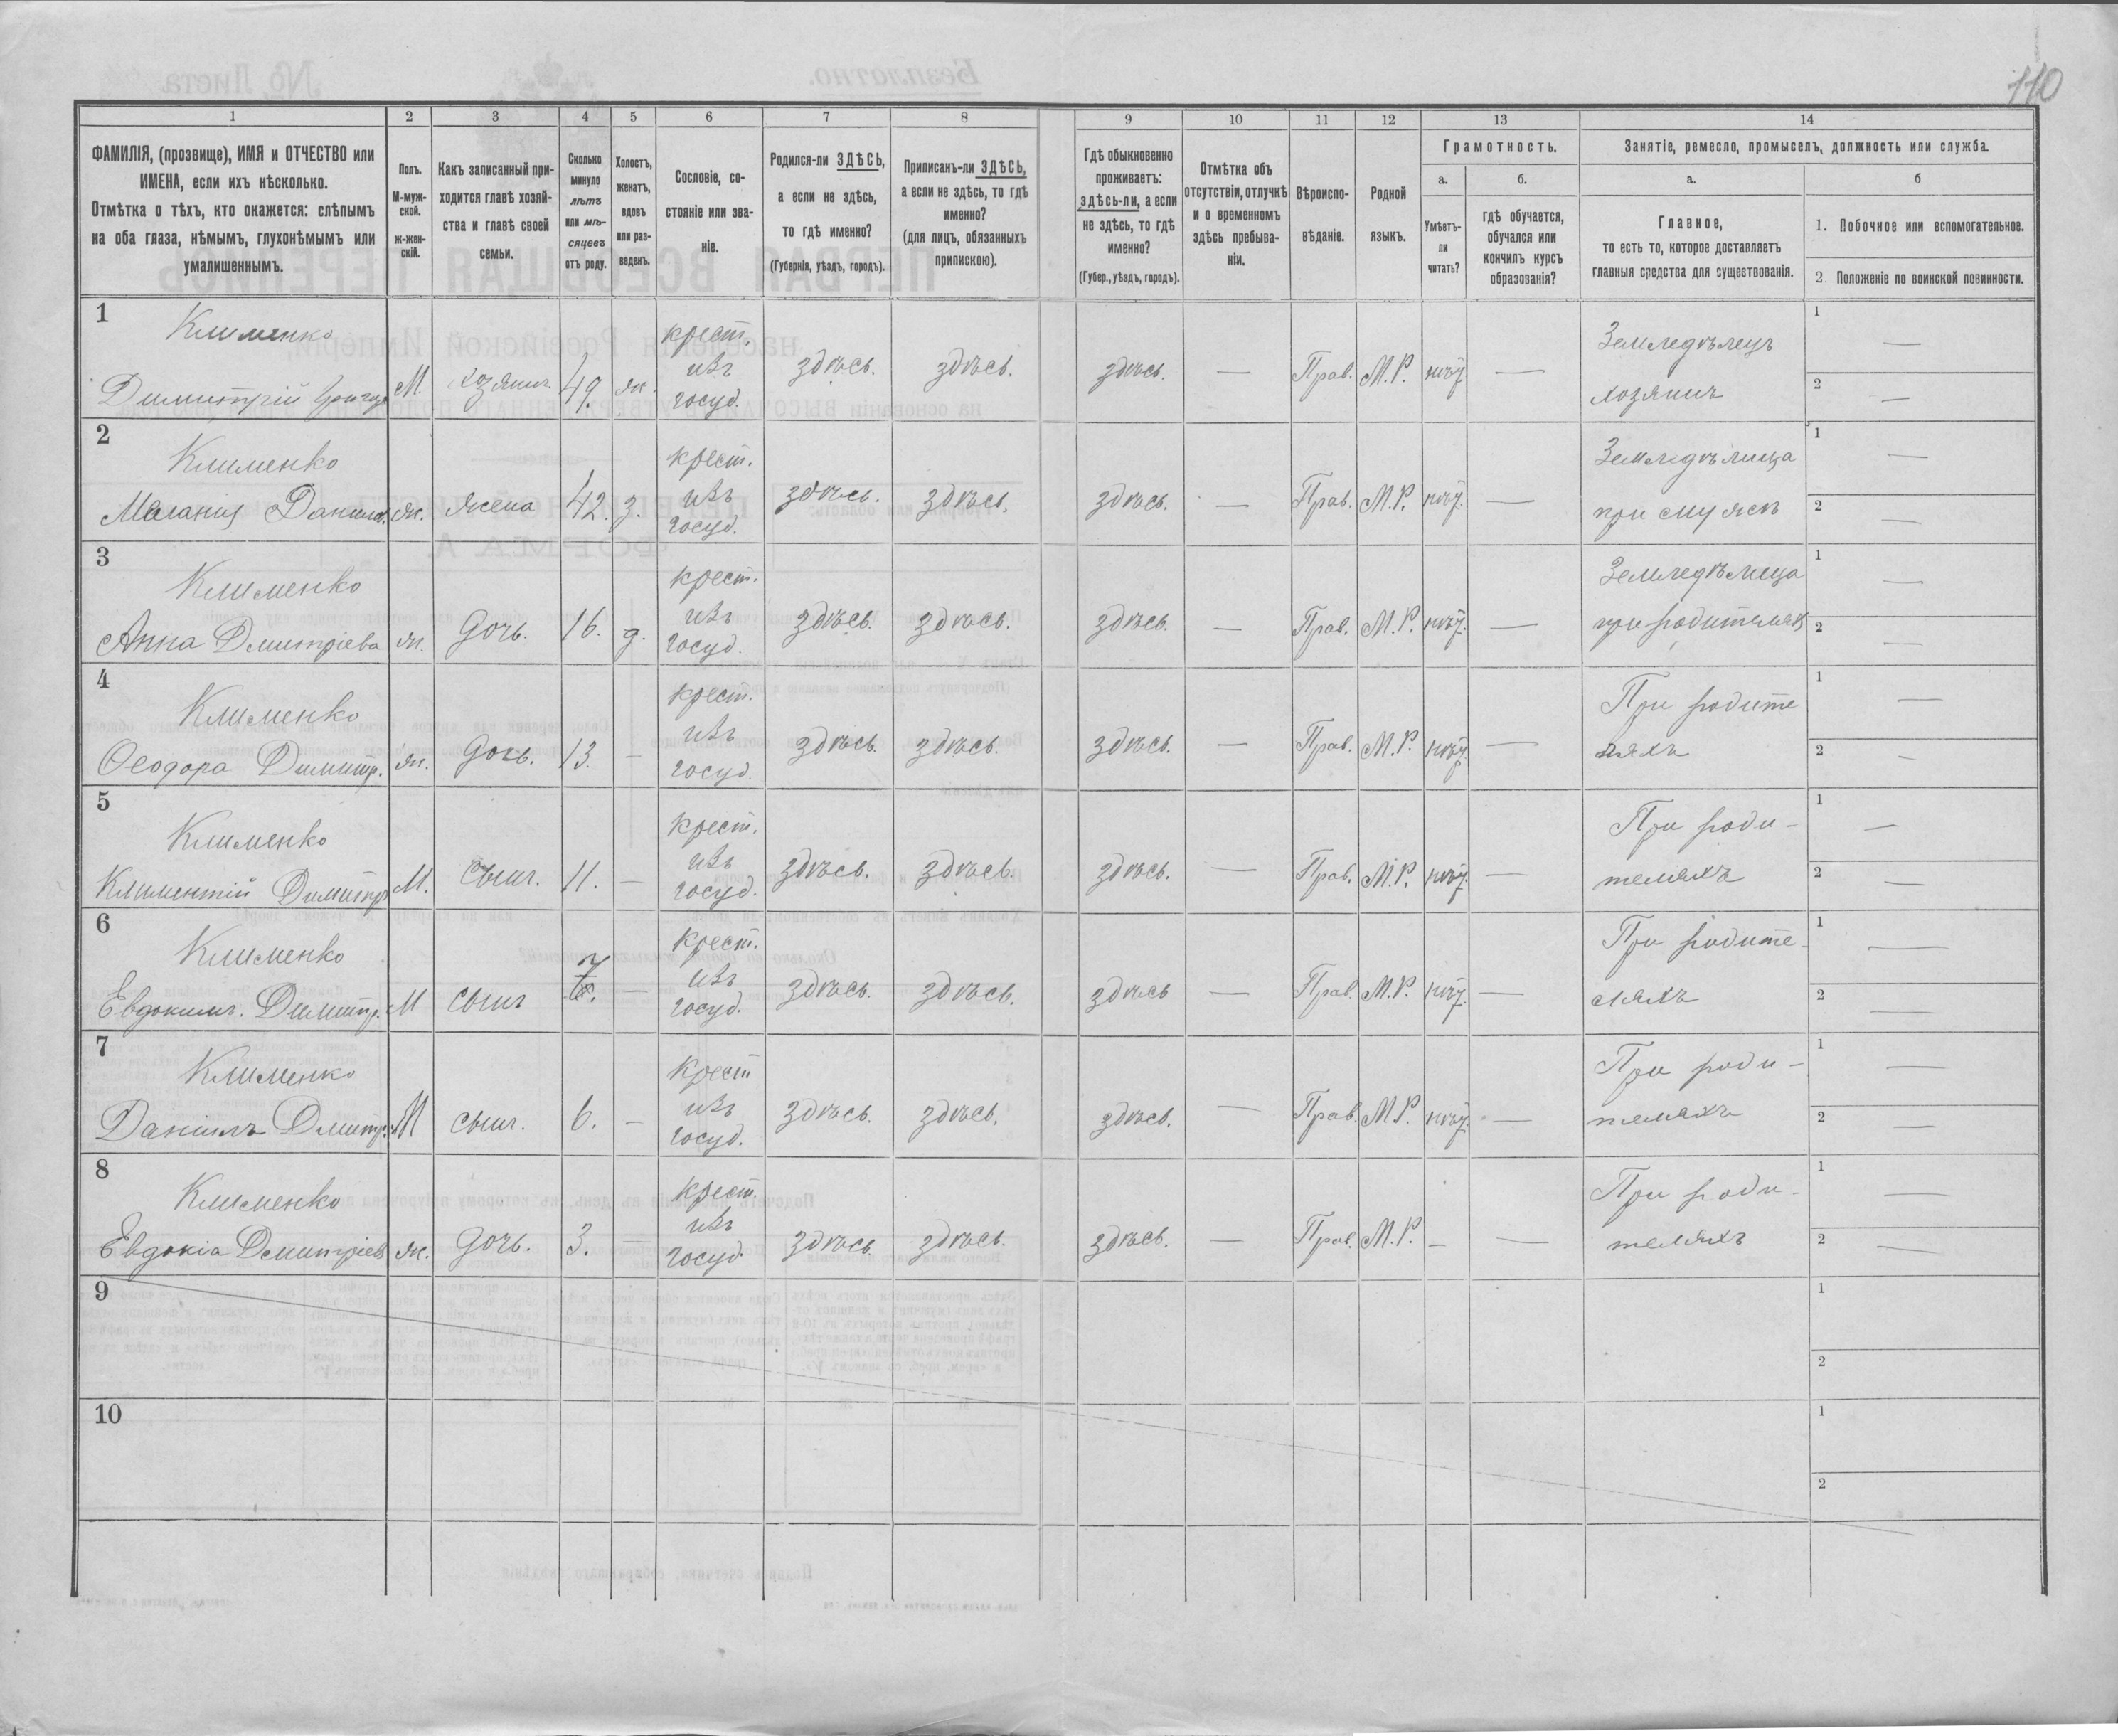 110
1 2 3 4 5 6 7 8 9 10 11 12 13 14
ФАМИЛІЯ, (прозвище), ИМЯ и ОТЧЕСТВО или
ИМЕНА, если ихъ нѣсколько.
Отмѣтка о тѣхъ, кто окажется: слѣпымъ
на оба глаза, нѣмымъ, глухонѣмымъ или
умалишеннымъ.
Полъ.
М-муж-
ской.
ж-жен-
скій.
Какъ записанный при-
ходится главѣ хозяй-
ства и главѣ своей
семьи.
Сколько
минуло
лѣтъ
или мѣ-
сяцевъ
отъ роду.
Холостъ,
женатъ,
вдовъ
или раз-
веденъ.
Сословіе, со-
стояніе или зва-
ніе.
Родился-ли ЗДѢСЬ,
а если не здѣсь,
то гдѣ именно?
(Губернія, уѣздъ, городъ).
Приписанъ-ли ЗДѢСЬ,
а если не здѣсь, то гдѣ
именно?
(для лицъ, обязанныхъ
припискою).
Гдѣ обыкновенно
проживаетъ:
здѣсь-ли, а если
не здѣсь, то гдѣ
именно?
(Губер., уѣздъ, городъ).
Отмѣтка объ
отсутствіи, отлучкѣ
и о временномъ
здѣсь пребыва-
ніи.
Вѣроиспо-
вѣданіе.
Родной
языкъ.
Грамотность.
а.
Умѣетъ-
ли
читать?
б.
гдѣ обучается,
обучался или
кончилъ курсъ
образованія?
Занятіе, ремесло, промыселъ, должность или служба.
а.
Главное,
то есть то, которое доставляетъ
главныя средства для существованія.
б
1. Побочное или вспомогательное.
2. Положеніе по воинской повинности.
1
Клименко крест. Земледѣлецъ 1 —
Димитрій М. хозяинъ 49. ж. изъ здѣсь. здѣсь. здѣсь. — Прав. М.Р. нѣтъ —
госуд. хозяинъ 2 —
2
Клименко крест. Земледѣлица 1 —
Меланія Данил. ж. жена 42. з. изъ здѣсь. здѣсь. здѣсь. - Прав. М.Р. нѣтъ —
госуд. при мужѣ 2 —
3
Клименко крест. Земледѣлица 1 —
Анна Дмитріева ж. дочь. 16. д. изъ здѣсь. здѣсь. здѣсь. — Прав. М.Р. нѣтъ. —
госуд. при родителяхъ 2 —
4
Клименко крест. При родите 1 —
Ѳеодора Димитр. ж. дочь. 13. — изъ здѣсь. здѣсь. здѣсь. — Прав. М.Р. нѣтъ —
госуд. ляхъ 2 —
5
Клименко крест. При роди- 1 —
Климентій Димитр М. сынъ. 11. — изъ здѣсь. здѣсь. здѣсь. — Прав. М.Р. нѣтъ. —
госуд. теляхъ 2 —
6
Клименко крест. При родите- 1 —
Евдокимъ. Димитр. М сынъ 7 — изъ здѣсь. здѣсь. здѣсь — Прав. М.Р. нѣтъ. —
госуд. ляхъ 2 —
7
Клименко крест При роди- 1 —
Даніилъ Дмитр. М сынъ. 6. — изъ здѣсь. здѣсь. здѣсь. — Прав. М.Р. нѣтъ. —
госуд. теляхъ 2 —
8
Клименко крест. При роди- 1 —
Евдокія Дмитріев ж. дочь. 3. — изъ здѣсь здѣсь. здѣсь. — Прав. М.Р. — —
госуд. теляхъ 2 —
9 1
2
10 1
2